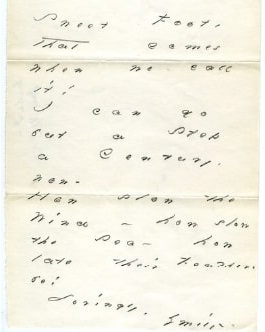 Sweet Foot,
that comes
when we call
it!
I can go
but a Step
a Century
now -
How slow the
Wind - how slow
the Sea - how
late their Feathers
be!
Lovingly,
Emily -